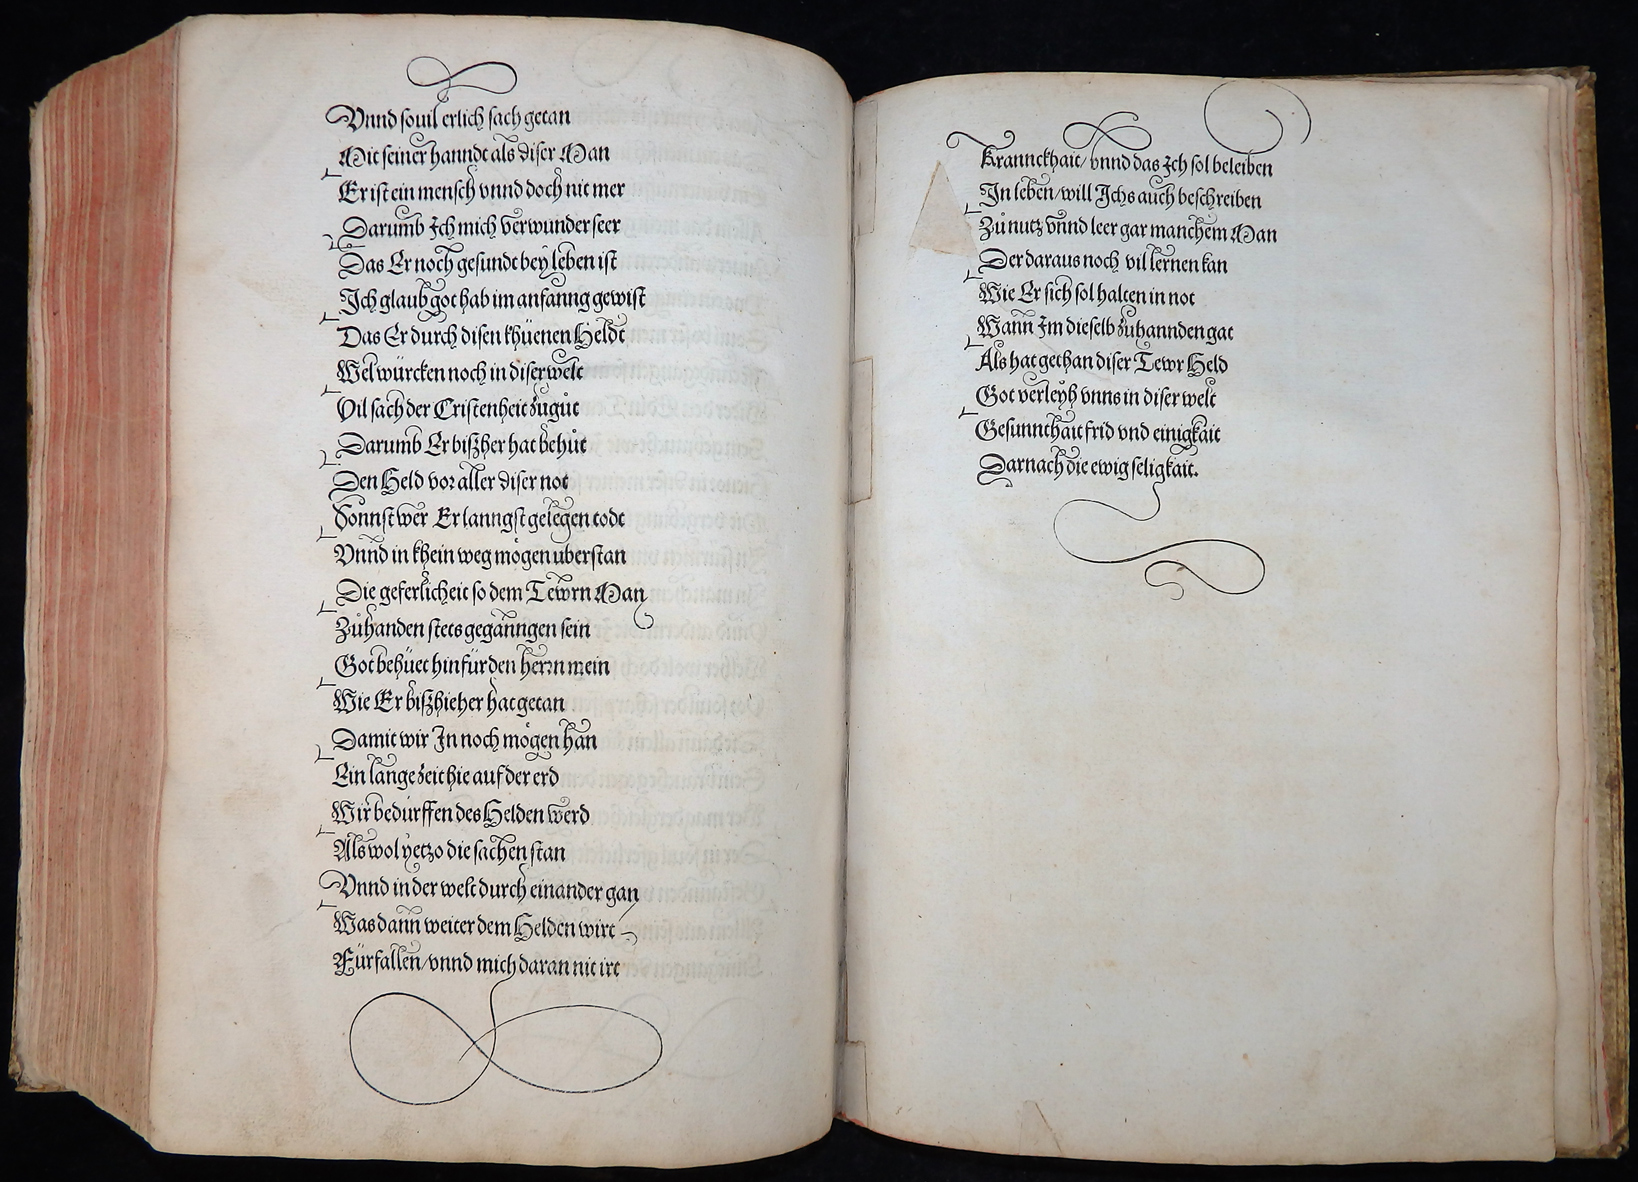 Vnnd souil erlich sach getan
Mit seiner hanndt als diser Man
Er ist ein mensch vnnd doch nit mer
Darumb Ich mich verwunder seer
Das Er noch gesundt bey leben ist
Ich glaub got hab im anfanng gewist
Das Er durch disen khüenen Heldt
Wel würcken noch in diser welt
Vil sach der Cristenheit zugůt
Darumb Er bißher hat behůt
Den Held vor aller diser not
Sonnst wer Er lanngst gelegen todt
Vnnd in khein weg mögen uberstan
Die geferlicheit so dem Tewrn Man
Zůhanden stets geganngen sein
Got behüet hinfür den herrn mein
Wie Er bißhieher hat getan
Damit wir In noch mögen han
Ein lange zeit hie auf der erd
Wir bedurffen des Helden werd
Als wol yetzo die sachen stan
Vnnd in der welt durch einander gan
Was dann weiter dem Helden wirt
Fürfallen/vnnd mich daran nit irt
KranncKhait/vnnd das Ich sol beleiben
In leben/will Ichs auch beschreiben
Zů nutz vnnd leer gar manchem Man
Der daraus noch vil lernen kan
Wie Er sich sol halten in not
Wann Im dieselb zuhannden gat
Als hat gethan diser Tewr Held
Got verleyh vnns in diser welt
Gesunnthait frid vnd einigkait
Darnach die ewig seligkait.